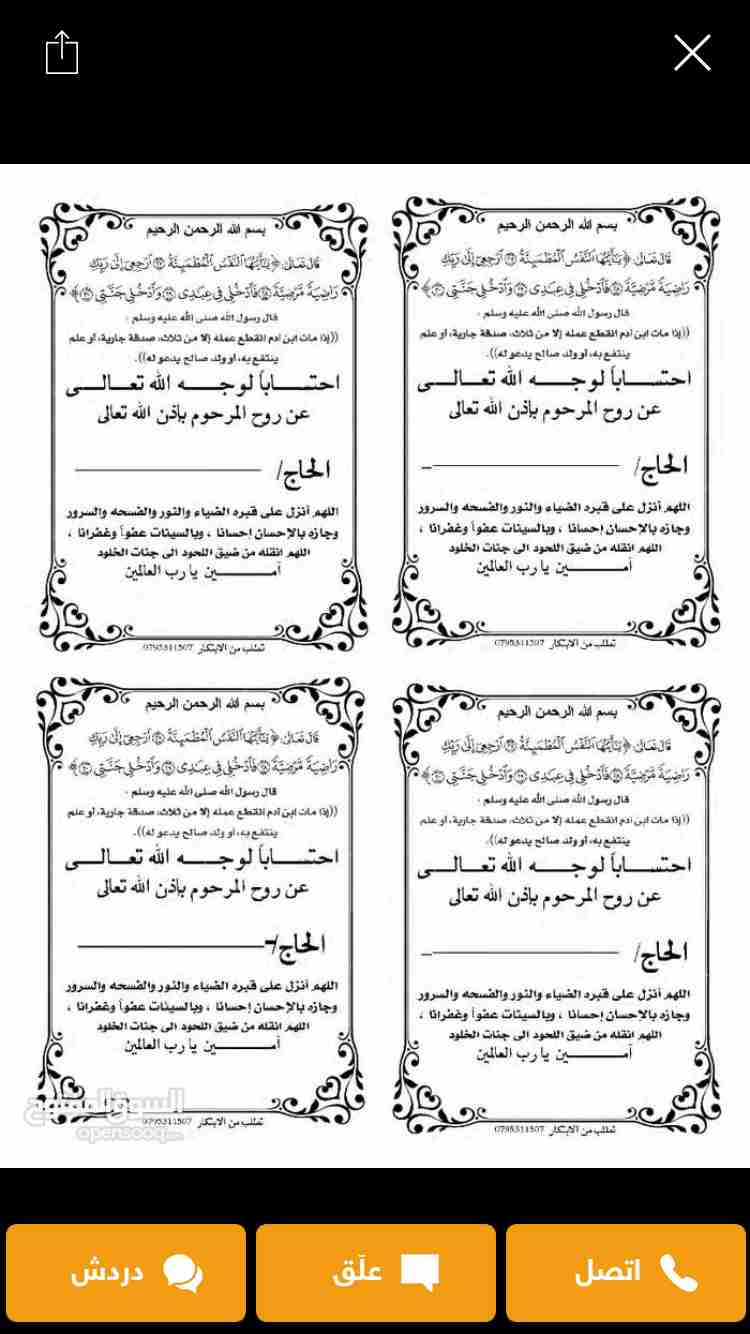 بسم الله الرحمن الرحيم
قال تعالى ﴿يَٰٓأَيَّتُهَا ٱلنَّفۡسُ ٱلۡمُطۡمَئِنَّةُ ٢٧ ٱرۡجِعِيٓ إِلَىٰ رَبِّكِ
رَاضِيَةٗ مَّرۡضِيَّةٗ ٢٨ فَٱدۡخُلِي فِي عِبَٰدِي ٢٩ وَٱدۡخُلِي جَنَّتِي ٣٠﴾
قال رسول الله صلى الله عليه وسلم :
((إذا مات ابن آدم انقطع عمله إلا من ثلاث، صدقة جارية، أو علم
ينتفع به، أو ولد صالح يدعو له)).
احتساباً لوجه الله تعالى
عن روح المرحوم بإذن الله تعالى
الحاج/
اللهم أنزل على قبره الضياء والنور والفسحه والسرور
وجازه بالإحسان إحسانا ، وبالسيئات عفواً وغفرانا ،
اللهم انقله من ضيق اللحود الى جنات الخلود
آمين يا رب العالمين
تطلب من الابتكار 0795311507
بسم الله الرحمن الرحيم
قال تعالى ﴿يَٰٓأَيَّتُهَا ٱلنَّفۡسُ ٱلۡمُطۡمَئِنَّةُ ٢٧ ٱرۡجِعِيٓ إِلَىٰ رَبِّكِ
رَاضِيَةٗ مَّرۡضِيَّةٗ ٢٨ فَٱدۡخُلِي فِي عِبَٰدِي ٢٩ وَٱدۡخُلِي جَنَّتِي ٣٠﴾
قال رسول الله صلى الله عليه وسلم :
((إذا مات ابن آدم انقطع عمله إلا من ثلاث، صدقة جارية، أو علم
ينتفع به، أو ولد صالح يدعو له)).
احتساباً لوجه الله تعالى
عن روح المرحوم بإذن الله تعالى
الحاج/
اللهم أنزل على قبره الضياء والنور والفسحه والسرور
وجازه بالإحسان إحسانا ، وبالسيئات عفواً وغفرانا ،
اللهم انقله من ضيق اللحود الى جنات الخلود
آمين يا رب العالمين
تطلب من الابتكار 0795311507
بسم الله الرحمن الرحيم
قال تعالى ﴿يَٰٓأَيَّتُهَا ٱلنَّفۡسُ ٱلۡمُطۡمَئِنَّةُ ٢٧ ٱرۡجِعِيٓ إِلَىٰ رَبِّكِ
رَاضِيَةٗ مَّرۡضِيَّةٗ ٢٨ فَٱدۡخُلِي فِي عِبَٰدِي ٢٩ وَٱدۡخُلِي جَنَّتِي ٣٠﴾
قال رسول الله صلى الله عليه وسلم :
((إذا مات ابن آدم انقطع عمله إلا من ثلاث، صدقة جارية، أو علم
ينتفع به، أو ولد صالح يدعو له)).
احتساباً لوجه الله تعالى
عن روح المرحوم بإذن الله تعالى
الحاج/
اللهم أنزل على قبره الضياء والنور والفسحه والسرور
وجازه بالإحسان إحسانا ، وبالسيئات عفواً وغفرانا ،
اللهم انقله من ضيق اللحود الى جنات الخلود
آمين يا رب العالمين
تطلب من الابتكار 0795311507
بسم الله الرحمن الرحيم
قال تعالى ﴿يَٰٓأَيَّتُهَا ٱلنَّفۡسُ ٱلۡمُطۡمَئِنَّةُ ٢٧ ٱرۡجِعِيٓ إِلَىٰ رَبِّكِ
رَاضِيَةٗ مَّرۡضِيَّةٗ ٢٨ فَٱدۡخُلِي فِي عِبَٰدِي ٢٩ وَٱدۡخُلِي جَنَّتِي ٣٠﴾
قال رسول الله صلى الله عليه وسلم :
((إذا مات ابن آدم انقطع عمله إلا من ثلاث، صدقة جارية، أو علم
ينتفع به، أو ولد صالح يدعو له)).
احتساباً لوجه الله تعالى
عن روح المرحوم بإذن الله تعالى
الحاج/
اللهم أنزل على قبره الضياء والنور والفسحه والسرور
وجازه بالإحسان إحسانا ، وبالسيئات عفواً وغفرانا ،
اللهم انقله من ضيق اللحود الى جنات الخلود
آمين يا رب العالمين
تطلب من الابتكار 0795311507
السوق المفتوح
opensooq.com
اتصل
علّق
دردش